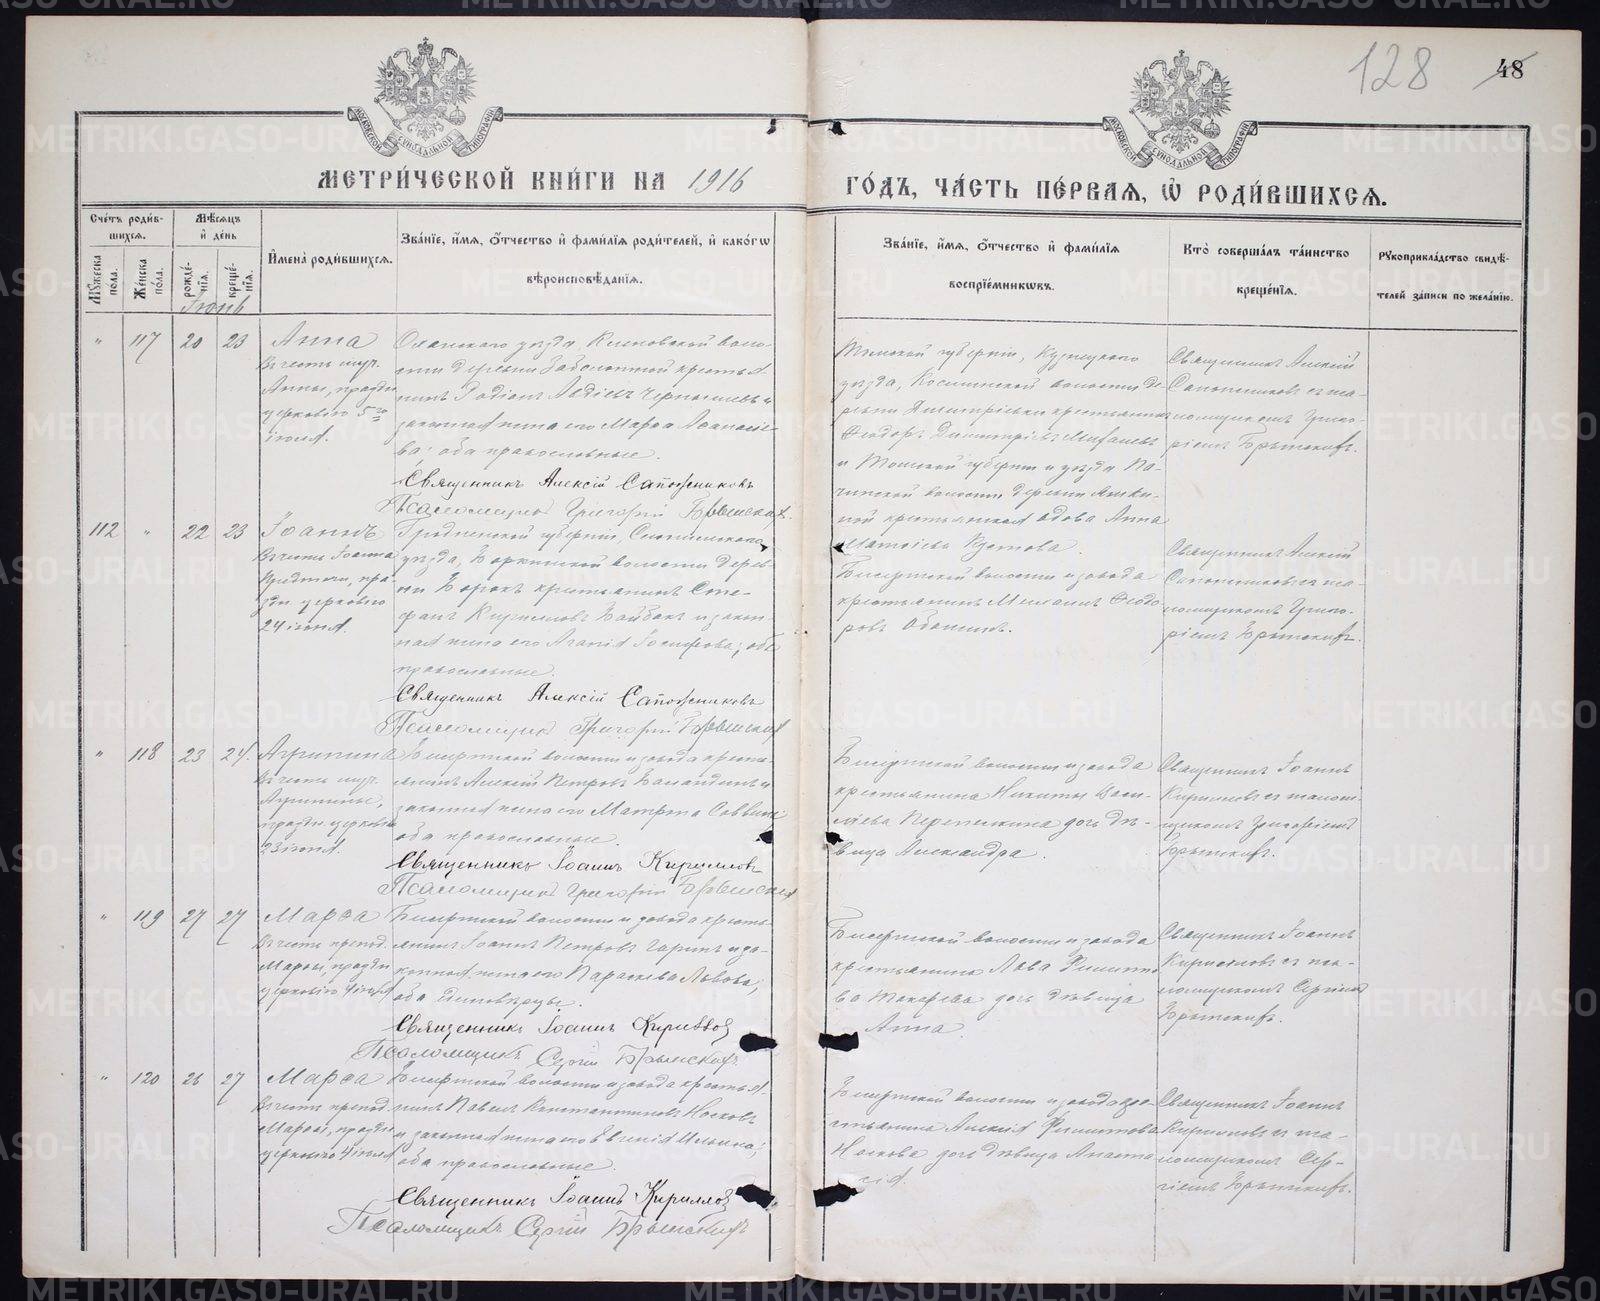 128
48
МОСКОВСКОЙ СѴНОДАЛЬНОЙ ТИПОГРАФІИ
МОСКОВСКОЙ СѴНОДАЛЬНОЙ ТИПОГРАФІИ
МЕТРИ́ЧЕСКОЙ КНИ́ГИ НА 1916
ГО́ДЪ, ЧА́СТЬ ПЕ́РВАЯ, Ѡ҆ РОДИ́ВШИХСЯ.
Сче́тъ роди́в-
шихся.
Мꙋ́жеска пола.
Же́нска по́ла.
Мѣ́сяцъ
и҆ де́нь
рожде́-
нїя.
креще́-
нїя.
И҆мена̀ роди́вшихся.
Зва́нїе, и҆́мя, ѻ҆́тчество и҆ фами́лїя роди́телей, и҆ како́гѡ
вѣроисповѣ́данїя.
Зва́нїе, и҆́мя, ѻ҆́тчество и҆ фами́лїя
воспрїе́мникѡвъ.
Кто̀ соверша́лъ та́инство
креще́нїя.
Рꙋкоприкла́дство свидѣ́-
телей за́писи по жела́нїю.
Іюнь
" 117 20 23
Анна
въ честь муч.
Анны, праздн.
церковію 5го
іюня.
уѣзда, воло-
сти деревни крестья-
нинъ Родіонъ и
законная жена его Марѳа
оба православные.
Священникъ Алексій Сапожниковъ
Псаломщикъ Григорій Брынскихъ.
Томской губерніи, Кузнецкого
уѣзда, волости де-
ревни крестьянинъ
Ѳеодоръ Димитріевъ
и Томской губерніи и уѣзда
волости деревни
крестьянская вдова Анна
Священникъ Алексій
Сапожниковъ съ пса-
ломщикомъ Григо-
ріемъ Брынскихъ.
112 " 22 23
Іоаннъ
въ честь Іоанна
Предтечи, пра-
здн. церковію
24 іюня.
Гродненской губерніи, Слонимскаго
уѣзда, волости дерев-
ни крестьянинъ Сте-
фанъ Кирилловъ и закон-
ная жена его Агапія Іосифова; оба
православные.
Священникъ Алексій Сапожниковъ
Псаломщикъ Григорій Брынскихъ
Бисертской волости и завода
крестьянинъ Михаилъ Ѳеодо-
ровъ
Священникъ Алексій
Сапожниковъ съ пса-
ломщикомъ Григо-
ріемъ Брынскихъ.
" 118 23 24.
Агрипина
въ честь муч.
Агрипины,
праздн. церковію
23 іюня.
Бисертской волости и завода кресть-
янинъ Алексій Петровъ и
законная жена его Матрона Саввина
оба православные.
Священникъ Іоаннъ Кирилловъ
Псаломщикъ Григорій Брынскихъ
Бисертской волости и завода
крестьянина Никиты Васи-
ліева Перепелкина дочь дѣ-
вица Александра.
Священникъ Іоаннъ
Кирилловъ съ псалом-
щикомъ Григоріемъ
Брынскихъ.
" 119 27 27
Марѳа
въ честь препод.
Марѳы, праздн.
церковію 4 іюля
Бисертской волости и завода кресть-
янинъ Іоаннъ Петровъ и за-
конная жена его Параскева Львова;
оба единовѣрцы.
Священникъ Іоаннъ Кирилловъ
Псаломщикъ Сергій Брынскихъ.
Бисертской волости и завода
крестьянина Льва Филиппо-
ва Токарева дочь дѣвица
Анна
Священникъ Іоаннъ
Кирилловъ съ пса-
ломщикомъ Сергіемъ
Брынскихъ.
" 120 26 27
Марѳа
въ честь препод.
Марѳы, праздн.
церковію 4 іюля
Бисертской волости и завода крестья-
нинъ Павелъ Константиновъ Носковъ
и законная жена его Евгенія Ильина;
оба православные.
Священникъ Іоаннъ Кирилловъ
Псаломщикъ Сергій Брынскихъ
Бисертской волости и завода кре-
стьянина Алексія Филиппова
Носкова дочь дѣвица Анаста-
сія.
Священникъ Іоаннъ
Кирилловъ съ пса-
ломщикомъ Сер-
гіемъ Брынскихъ.
METRIKI.GASO-URAL.RU